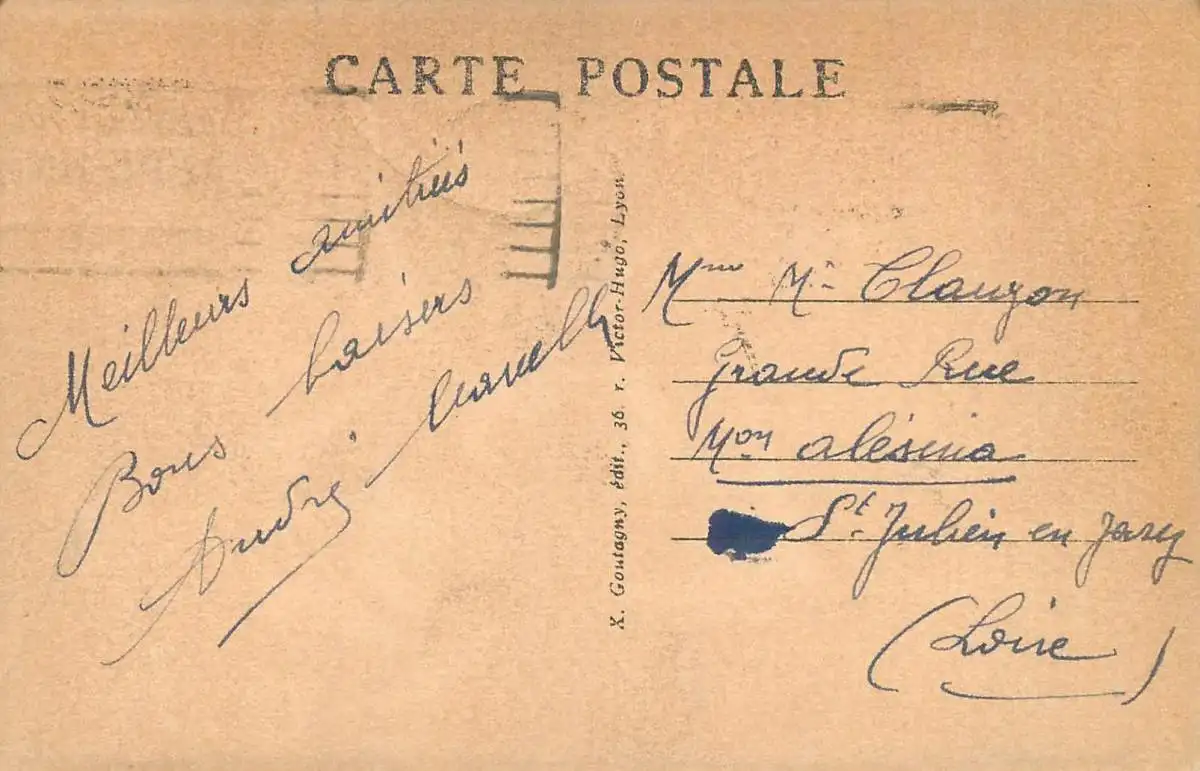 CARTE POSTALE
Meilleurs amitiés
Bons baisers
André
X. Goutagny, édit., 36, r. Victor-Hugo, Lyon
Mme Mce Clauzon
Grande Rue
Mon alésina
St. Julien en Jarez
(Loire)